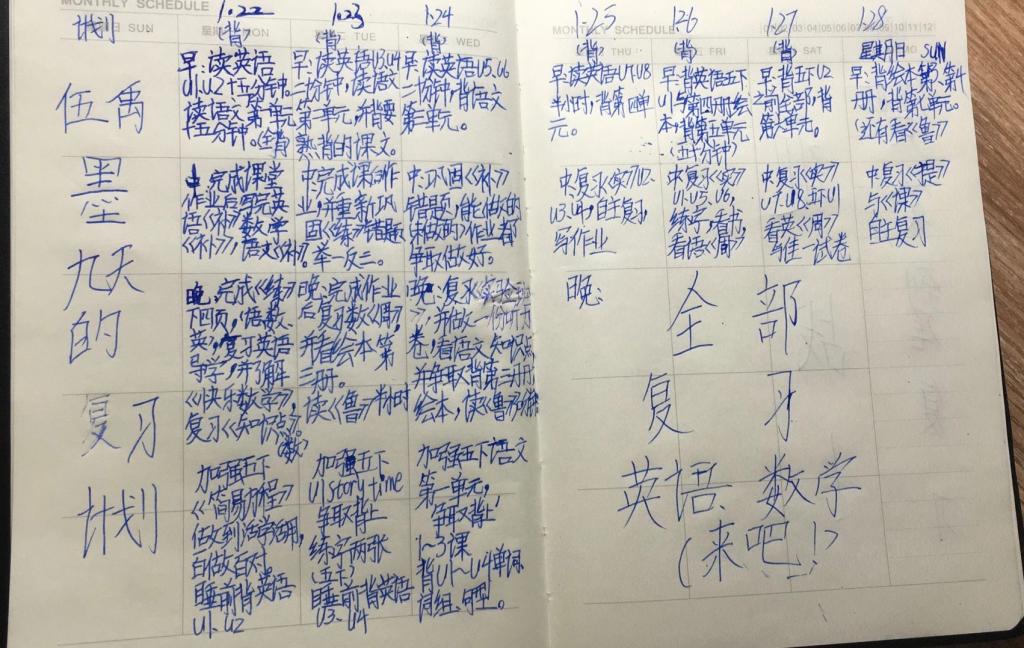 MONTHLY SCHEDULE
计划
SUN
伍禹
墨
九天
的
复习
计划
1.22
(背)
早:读英语
U1.U2十五分钟。
读语文第一单元
十五分钟。(全背)
中完成课堂
作业后写完英
语《补》,数学
《补》,语文《补》。
晚:完成《练》
下四页,语数
英,复习英语
导学,并了解
《快乐数学》,
复习《知识点》。
(数)
加强五下
《简易方程》
做到活学活用,
百做百对。
睡前背英语
U1、U2
1.23
(背)
TUE
早:读英语U3.U4
二十分钟,读语文
第二单元,并背要
熟背的课文。
中完成课的作
业,并重新巩
固《练》错题
举一反三。
晚:完成作业
后复习数《周》,
并看绘本第
三册。
读《鲁》半小时
加强五下
U1 story time
争取背上
练字两张
(五下)
睡前背英语
U3、U4
1.24
(背)
WED
早:读英语U5.U6
二十分钟,背语文
第三单元。
中:巩固《补》
错题,能做的
没做的作业都
争取做好。
晚:复习
并做一份听力
卷,看语文知识点
并争取背第三册
绘本,读《鲁》
加强五下语文
第一单元,
争取背上
1~3课
背U1~U4单词
词组、句型。
MONTHLY SCHEDULE
01 02 03 04 05 06 07 08 09 10 11 12
1.25
(背)
THU
早:读英语U7.U8
半小时,背第四单
元。
中:复习《实》U2.
U3.U4,自主复习,
写作业
1.26
(背)
FRI
早:背英语五下
U1与第四册绘
本,背第五单元
(五十分钟)
中:复习《实》
U1.U5.U6,
练字,看书,
看语《周》
1.27
(背)
SAT
早:背五下U2
之前全部,背
第六单元。
中复习《实》
U7.U8.五下U1
看英《周》
写往一试卷
1.28
星期日 SUN
早:背绘本第2、第4
册,背第七单元。
(还有看《鲁》)
中复习《提》
与《课》
自主复习
晚:
全部
复习
英语、数学
(来吧!)